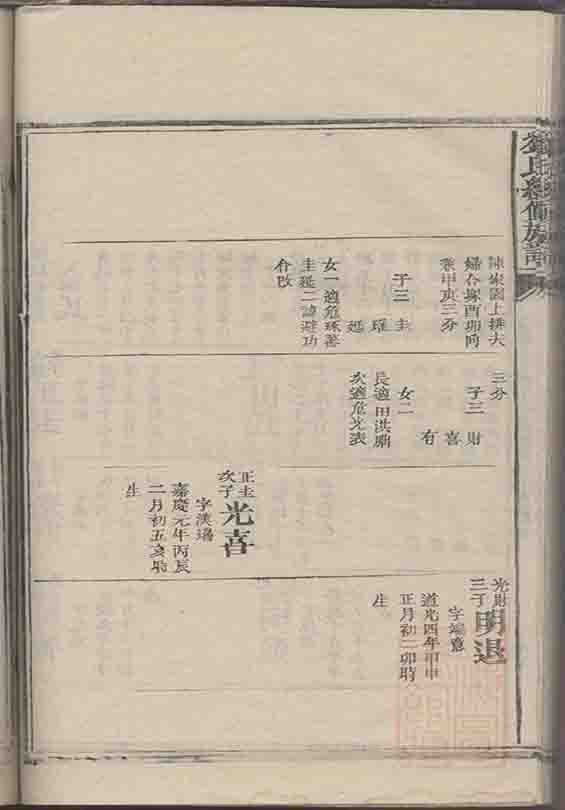 氏總備族譜
陳家園上排夫
婦合塚酉卯同
兼甲庚三分
子三 圭
璀
延
女一適危琢蓍
圭延二諱避功
介改
三分
子三 財
喜
有
女二
長適田洪鼎
次適危光表
正圭
次子
光喜
字漢瑒
嘉慶元年丙辰
二月初五亥時
生
光財
三子
明退
字端
道光四年甲申
正月初二卯時
生